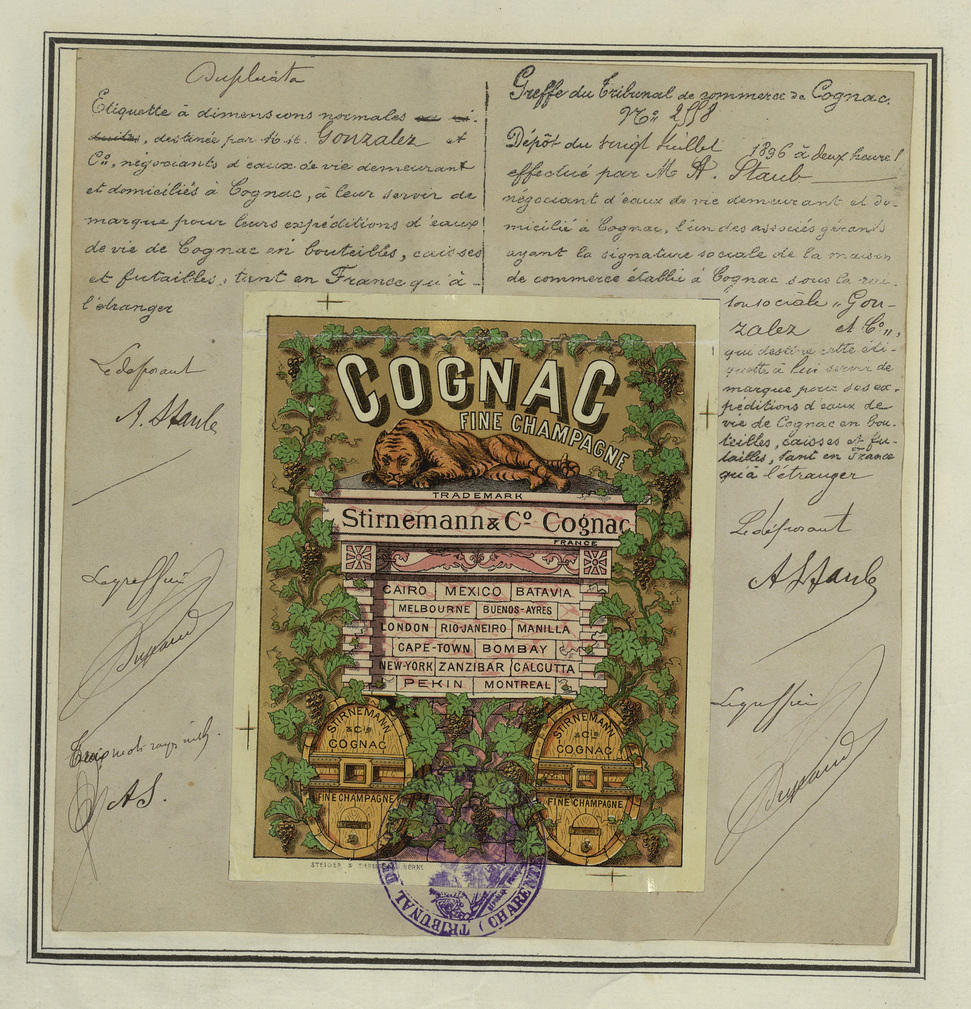 Duplicata
Etiquette à dimensions normales
destinée par M.M. Gonzalez et
Cie, négociants d'eaux de vie demeurant
et domiciliés à Cognac, à leur servir de
marque pour leurs expéditions d'eaux
de vie de Cognac en bouteilles, caisses
et futailles, tant en France qu'à
l'étranger
Le déposant
A. Staub
Le greffier
Trois mots rayés nuls.
A S.
Greffe du Tribunal de commerce de Cognac.
No 2558
Dépôt du vingt Juillet 1896 à deux heures
effectué par M A. Staub
négociant d'eaux de vie demeurant et do-
micilié à Cognac, l'un des associés gérants
ayant la signature sociale de la maison
de commerce établie à Cognac sous la rai-
son sociale "Gon-
zalez et Cie",
qui destine cette éti-
quette à lui servir de
marque pour ses ex-
péditions d'eaux de
vie de Cognac en bou-
teilles, caisses et fu-
tailles, tant en France
qu'à l'étranger
Le déposant
A Staub
Le greffier
COGNAC
FINE CHAMPAGNE
TRADEMARK
Stirnemann & Co Cognac
FRANCE
CAIRO MEXICO BATAVIA
MELBOURNE BUENOS-AYRES
LONDON RIO JANEIRO MANILLA
CAPE-TOWN BOMBAY
NEW-YORK ZANZIBAR CALCUTTA
PEKIN MONTREAL
STIRNEMANN
& Co
COGNAC
FINE CHAMPAGNE
STIRNEMANN
& Co
COGNAC
FINE CHAMPAGNE
STEIGER & BERNE
TRIBUNAL DE (CHARENTE